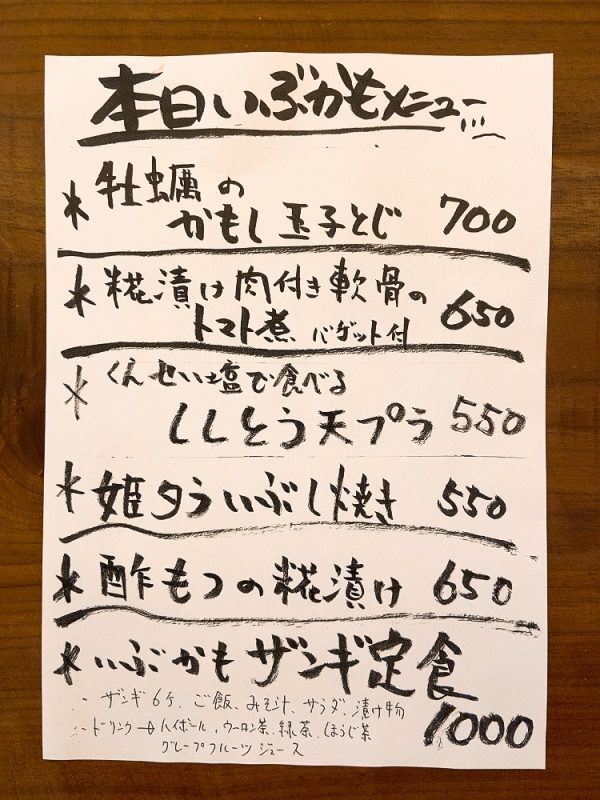 本日いぶかもメニュー
* 牡蠣の
かもし玉子とじ 700
* 糀漬け肉付き軟骨の
トマト煮 バゲット付 650
* くんせい塩で食べる
ししとう天プラ 550
* 姫タラいぶし焼き 550
* 酢もつの糀漬け 650
* いぶかもザンギ定食 1000
ザンギ6ケ、ご飯、みそ汁、サラダ、漬け物
ドリンク→ハイボール、ウーロン茶、緑茶、ほうじ茶
グレープフルーツジュース